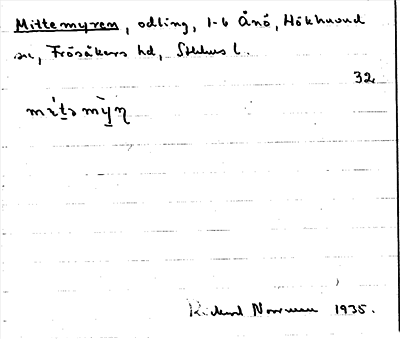 Mittemyren, odling, 1-6 Ånö, Hökhuvud
sn, Frösåkers hd, Sthlms l.
32.
mɪ́t̠ə mỳ̠ŋ
Rickard Norrman 1935.